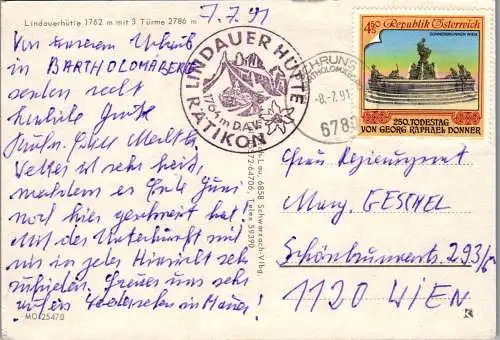 Lindauerhütte 1762 m mit 3 Türme 2786 m
7.7.91
Von unserem Urlaub
in BARTHOLOMÄBERG
senden recht
herzliche Grüße
Wetter ist sehr heiß,
nachdem es Ende Juni
noch hier geschneit hat!
Mit der Unterkunft sind
wir in jeder Hinsicht sehr
zufrieden. Freuen uns sehr
auf ein Wiedersehen in Mauer!
MO 25470
LINDAUER HÜTTE
1764 m D.A.V.
RÄTIKON
SCHRUNS
BARTHOLOMÄBERG
-8.-7.91
678
4.50 Republik Österreich
DONNERBRUNNEN WIEN
250. TODESTAG
VON GEORG RAPHAEL DONNER
6858 Schwarzach-Vlbg.
72-64706, Telex 59390
Frau Regierungsrat
Marg. GESCHEL
Schönbrunnerstr. 293/6
1120 WIEN